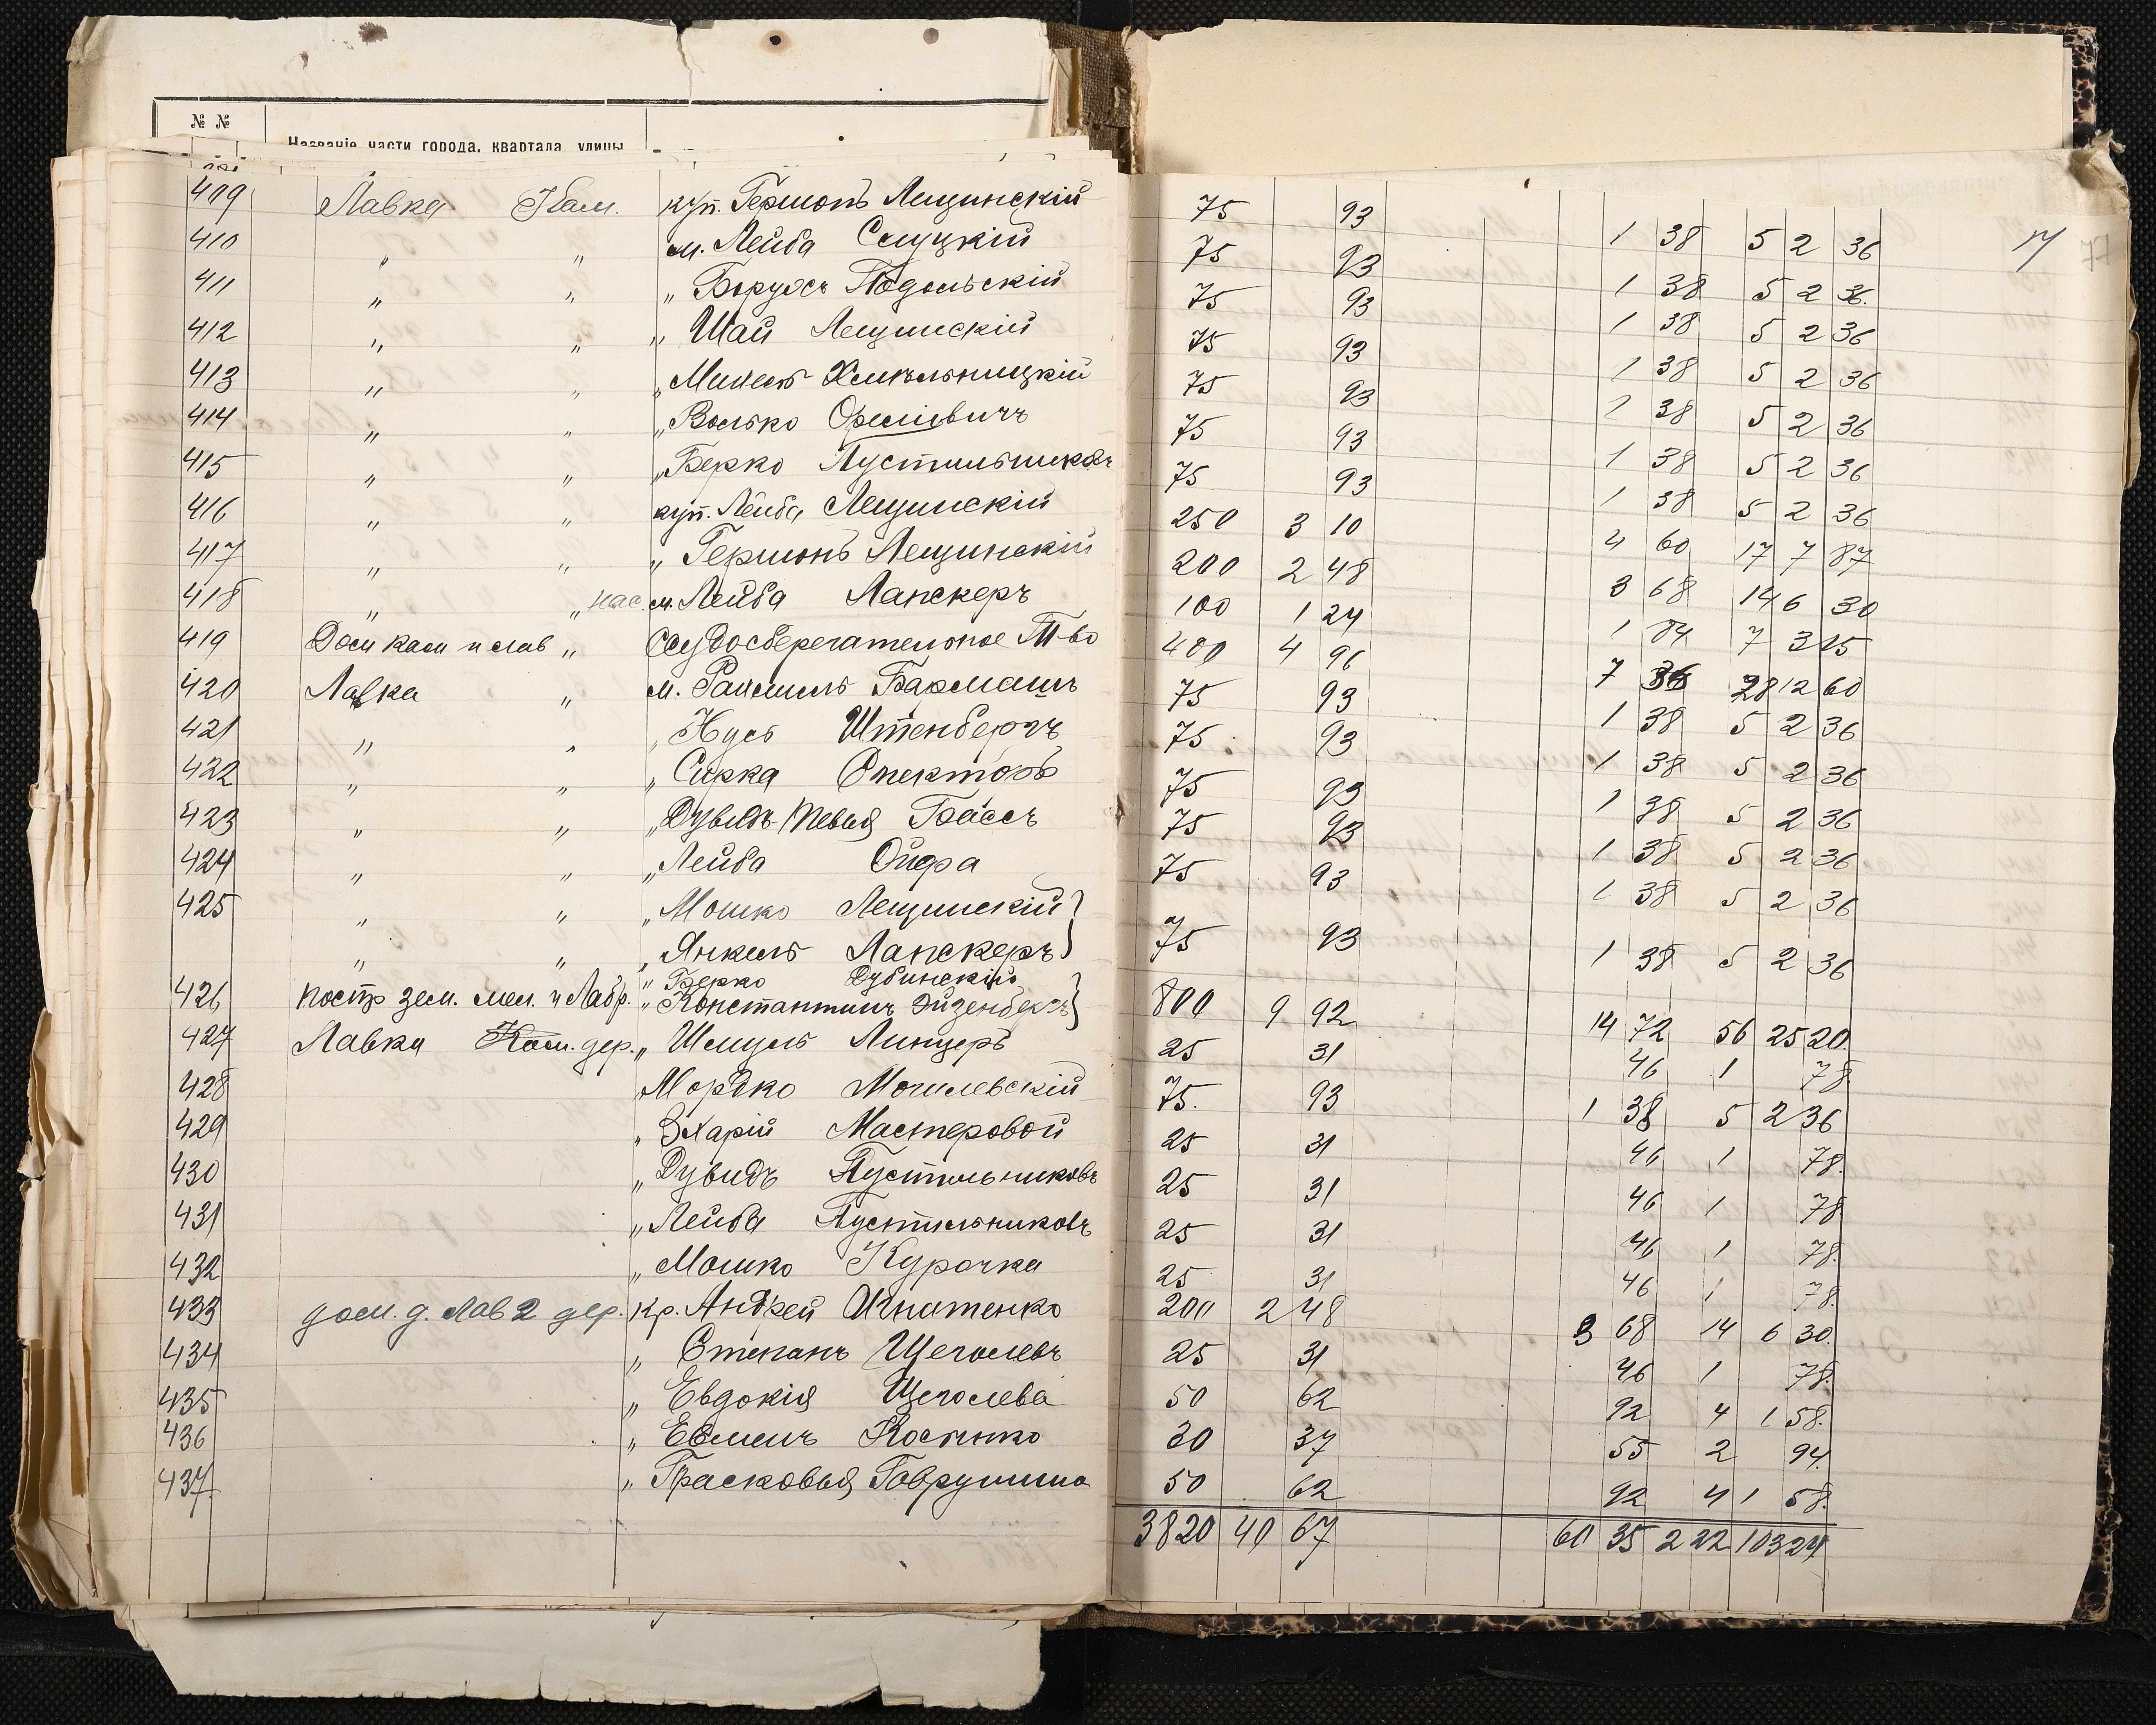 № №
Названіе части города, квартала, улицы
409 Лавка Кам. куп. Гершонъ Лещинскій 75 93 1 38 5 2 36 77
410 " " м. Лейба Слуцкій 75 93 1 38 5 2 36
411 " " " Борухъ Подольскій 75 93 1 38 5 2 36
412 " " " Шай Лещинскій 75 93 1 38 5 2 36
413 " " " Михель Хмельницкій 75 93 1 38 5 2 36
414 " " " Волько 75 93 1 38 5 2 36
415 " " " Берко Пустильниковъ 75 93 1 38 5 2 36
416 " " куп. Лейба Лещинскій 250 3 10 4 60 17 7 87
417 " " " Гершонъ Лещинскій 200 2 48 3 68 14 6 30
418 " " нас. м. Лейба Лапскеръ 100 1 24 1 84 7 3 15
419 Дом кам и лав " Ссудосберегательное Т-во 400 4 96 7 36 28 12 60
420 Лавка " м. Рахмиль Бармашъ 75 93 1 38 5 2 36
421 " " " Нусь Штенбергъ 75 93 1 38 5 2 36
422 " " " Сирка Спекторъ 75 93 1 38 5 2 36
423 " " " Дувидъ-Тевья Бассъ 75 93 1 38 5 2 36
424 " " " Лейба Ойфа 75 93 1 38 5 2 36
425 " " " Мошко Лещинскій
" " " Янкель Лапскеръ 75 93 1 38 5 2 36
" Берко Дубинскій
426 постр зем. мел. и Лабр. " Константинъ Эйзенбергъ 800 9 92 14 72 56 25 20
427 Лавка Кам. дер. " Шмуль Линцеръ 25 31 46 1 78
428 " Мордко Могилевскій 75 93 1 38 5 2 36
429 " Зхарій Мастеровой 25 31 46 1 78
430 " Дувидъ Пустильниковъ 25 31 46 1 78
431 " Лейба Пустильниковъ 25 31 46 1 78
432 " Мошко Курочка 25 31 46 1 78
433 дом. д. лав 2 дер. кр. Андрей Игнатенко 200 2 48 3 68 14 6 30
434 " Степанъ Щеголевъ 25 31 46 1 78
435 " Евдокія Щеголева 50 62 92 4 1 58
436 " Евменъ Костенко 30 37 55 2 94
437 " Прасковья Гаврушина 50 62 92 4 1 58
3820 40 67 60 35 222 103 24